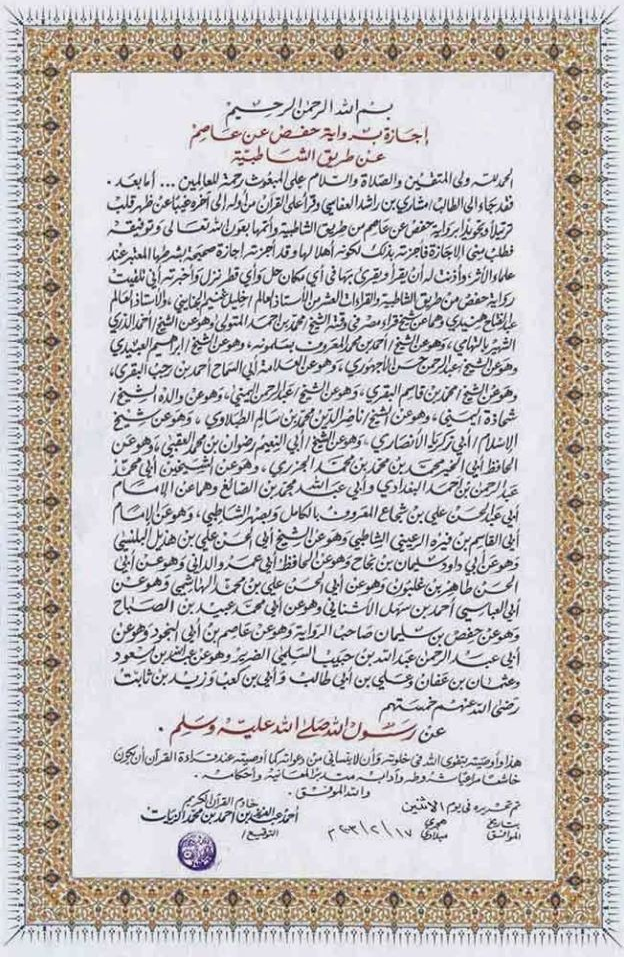 بسم الله الرحمن الرحيم
إجازة برواية حفص عن عاصم
عن طريق الشاطبية
الحمد لله ولي المتقين والصلاة والسلام على المبعوث رحمة للعالمين ... أما بعد .
فقد جاء إلى الطالب / مشاري بن راشد العفاسي وقرأ علي القرآن من أوله إلى آخره غيباً عن ظهر قلب
ترتيلاً وتجويداً برواية حفص عن عاصم من طريق الشاطبية وأتمها بعون الله تعالى وتوفيقه
فطلب مني الإجازة فأجزته بذلك لكونه أهلا لها وقد أجزته إجازة صحيحة بشرطها المعتبر عند
علماء الأثر، وأذنت له أن يقرأ ويقرئ بها في أي مكان حل وأي قطر نزل وأخبرته أني تلقيت
رواية حفص من طريق الشاطبية والقراءات العشر من الأستاذ العالم / خليل غنيم الجنايني ، والأستاذ العالم
عبد الفتاح هنيدي وهما عن شيخ قراء مصر في وقته الشيخ / محمد بن أحمد المتولي وهو عن الشيخ / أحمد الدري
الشهير بالتهامي ، وهو عن الشيخ / أحمد بن محمد المعروف بسلمونه ، وهو عن الشيخ / إبراهيم العبيدي
وهو عن الشيخ / عبد الرحمن بن حسن الأجهوري ، وهو عن العلامة أبي السماح أحمد بن رجب البقري ،
وهو عن الشيخ / محمد بن قاسم البقري ، وهو عن الشيخ / عبد الرحمن اليمني ، وهو عن والده الشيخ /
شحاذة اليمني ، وهو عن الشيخ / ناصر الدين محمد بن سالم الطبلاوي ، وهو عن شيخ
الإسلام / أبي زكريا الأنصاري ، وهو عن الشيخ / أبي النعيم رضوان بن محمد العقبي ، وهو عن
الحافظ أبي الخير محمد بن محمد بن محمد الجزري ، وهو عن الشيخين أبي محمد
عبد الرحمن بن أحمد البغدادي وأبي عبد الله محمد بن الصائغ وهما عن الإمام
أبي عبد الحسن علي بن شجاع المعروف بالكامل وبصهر الشاطبي ، وهو عن الإمام
أبي القاسم بن فيره الرعيني الشاطبي وهو عن الشيخ أبي الحسن علي بن هذيل البلنسي
وهو عن أبي داود سليمان بن نجاح وهو عن الحافظ / أبي عمرو الداني وهو عن أبي
الحسن طاهر بن غلبون وهو عن أبي الحسن علي بن محمد الهاشمي وهو عن
أبي العباس أحمد بن سهل الأشناني وهو عن أبي محمد عبيد بن الصباح
وهو عن حفص بن سليمان صاحب الرواية وهو عن عاصم بن أبي النجود وهو عن
أبي عبد الرحمن عبد الله بن حبيب السلمي الضرير وهو عن عبد الله بن مسعود
وعثمان بن عفان وعلي بن أبي طالب وأبي بن كعب وزيد بن ثابت
رضي الله عنهم خمستهم
عن رسول الله صلى الله عليه وسلم .
هذا وأوصيته بتقوى الله في خلوته وأن لا ينساني من دعواته كما أوصيته عند قراءة القرآن أن يكون
خاشعا مراعيا شروطه وآدابه متدبرا لمعانيه وأحكامه .
والله الموفق .
تم تحريره في يوم الاثنين
بتاريخ هجري
الموافق ١٧ / ٢ / ٢٠٠٣ م ميلادي
خادم القرآن الكريم
أحمد عبد العزيز بن أحمد بن محمد الزيات
التوقيع /